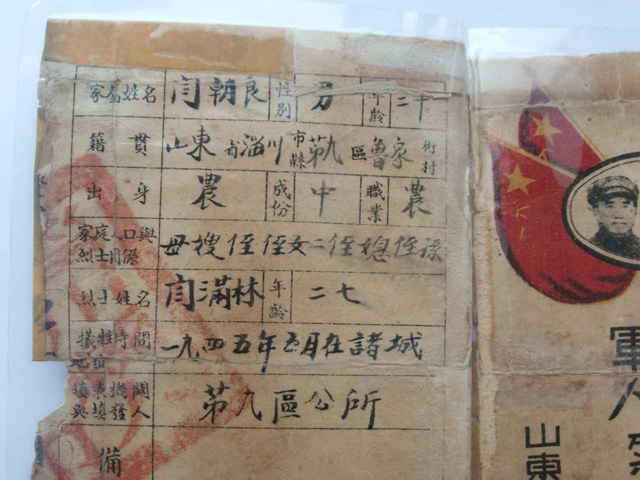 家属姓名 闫朝良 性别 男 年龄
籍贯 山東省淄川市縣第九區魯家街村
出身 農 成份 中 職業 農
家庭人口與烈士關係 母嫂侄侄女二侄媳侄孫
烈士姓名 闫滿林 年齡 二七
犧牲時間地位 一九四五年五月在諸城
填表機關與填發人 第九區公所
備
軍人
山東